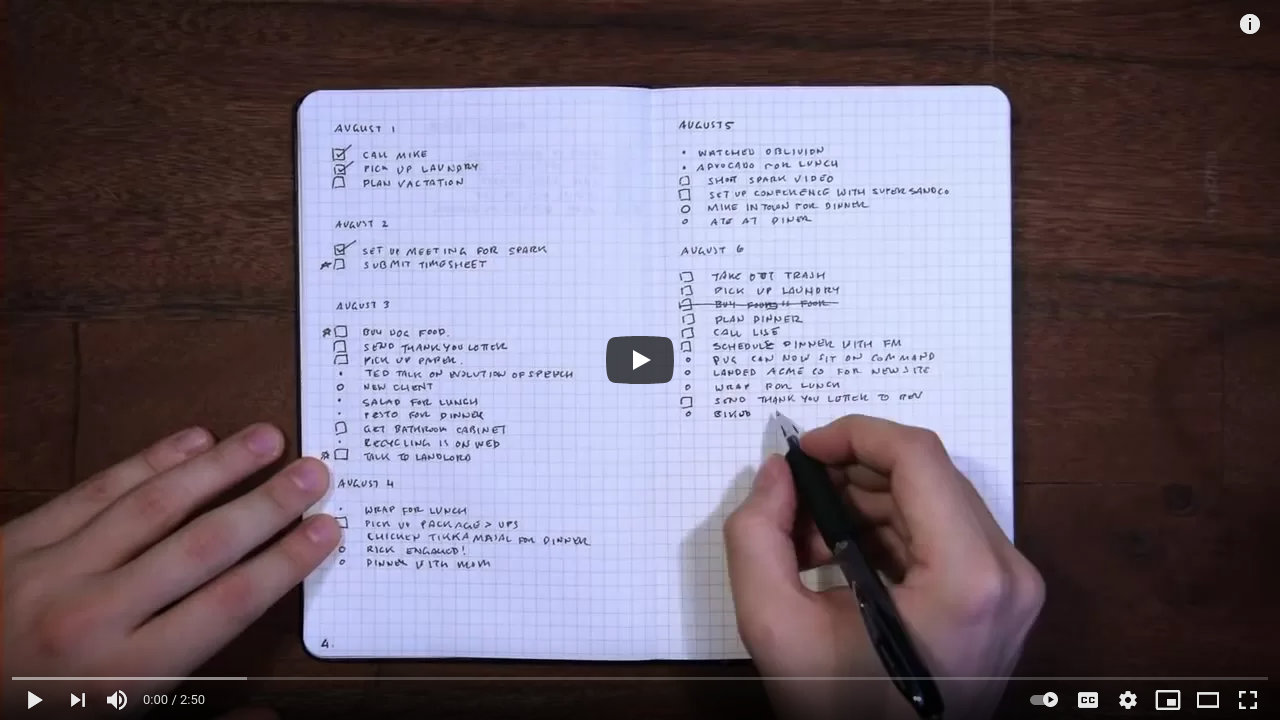 AUGUST 1
CALL MIKE
PICK UP LAUNDRY
PLAN VACTATION
AUGUST 2
SET UP MEETING FOR SPARK
SUBMIT TIMESHEET
AUGUST 3
BUY DOG FOOD.
SEND THANK YOU LETTER
PICK UP PAPER.
TED TALK ON EVOLUTION OF SPEECH
NEW CLIENT
SALAD FOR LUNCH
PESTO FOR DINNER
GET BATHROOM CABINET
RECYCLING IS ON WED
TALK TO LANDLORD
AUGUST 4
WRAP FOR LUNCH
PICK UP PACKAGE > UPS
CHICKEN TIKKA MASAL FOR DINNER
RICK ENGAGED!
DINNER WITH MOM
4.
AUGUST 5
WATCHED OBLIVION
ADVOCADO FOR LUNCH
SHOOT SPARK VIDEO
SET UP CONFERENCE WITH SUPERSANDCO
MIKE IN TOWN FOR DINNER
ATE AT DINER
AUGUST 6
TAKE OUT TRASH
PICK UP LAUNDRY
BUY
PLAN DINNER
CALL LISE
SCHEDULE DINNER WITH FM
PUG CAN NOW SIT ON COMMAND
LANDED ACME CO FOR NEW SITE
WRAP FOR LUNCH
SEND THANK YOU LETTER TO
0:00 / 2:50
CC